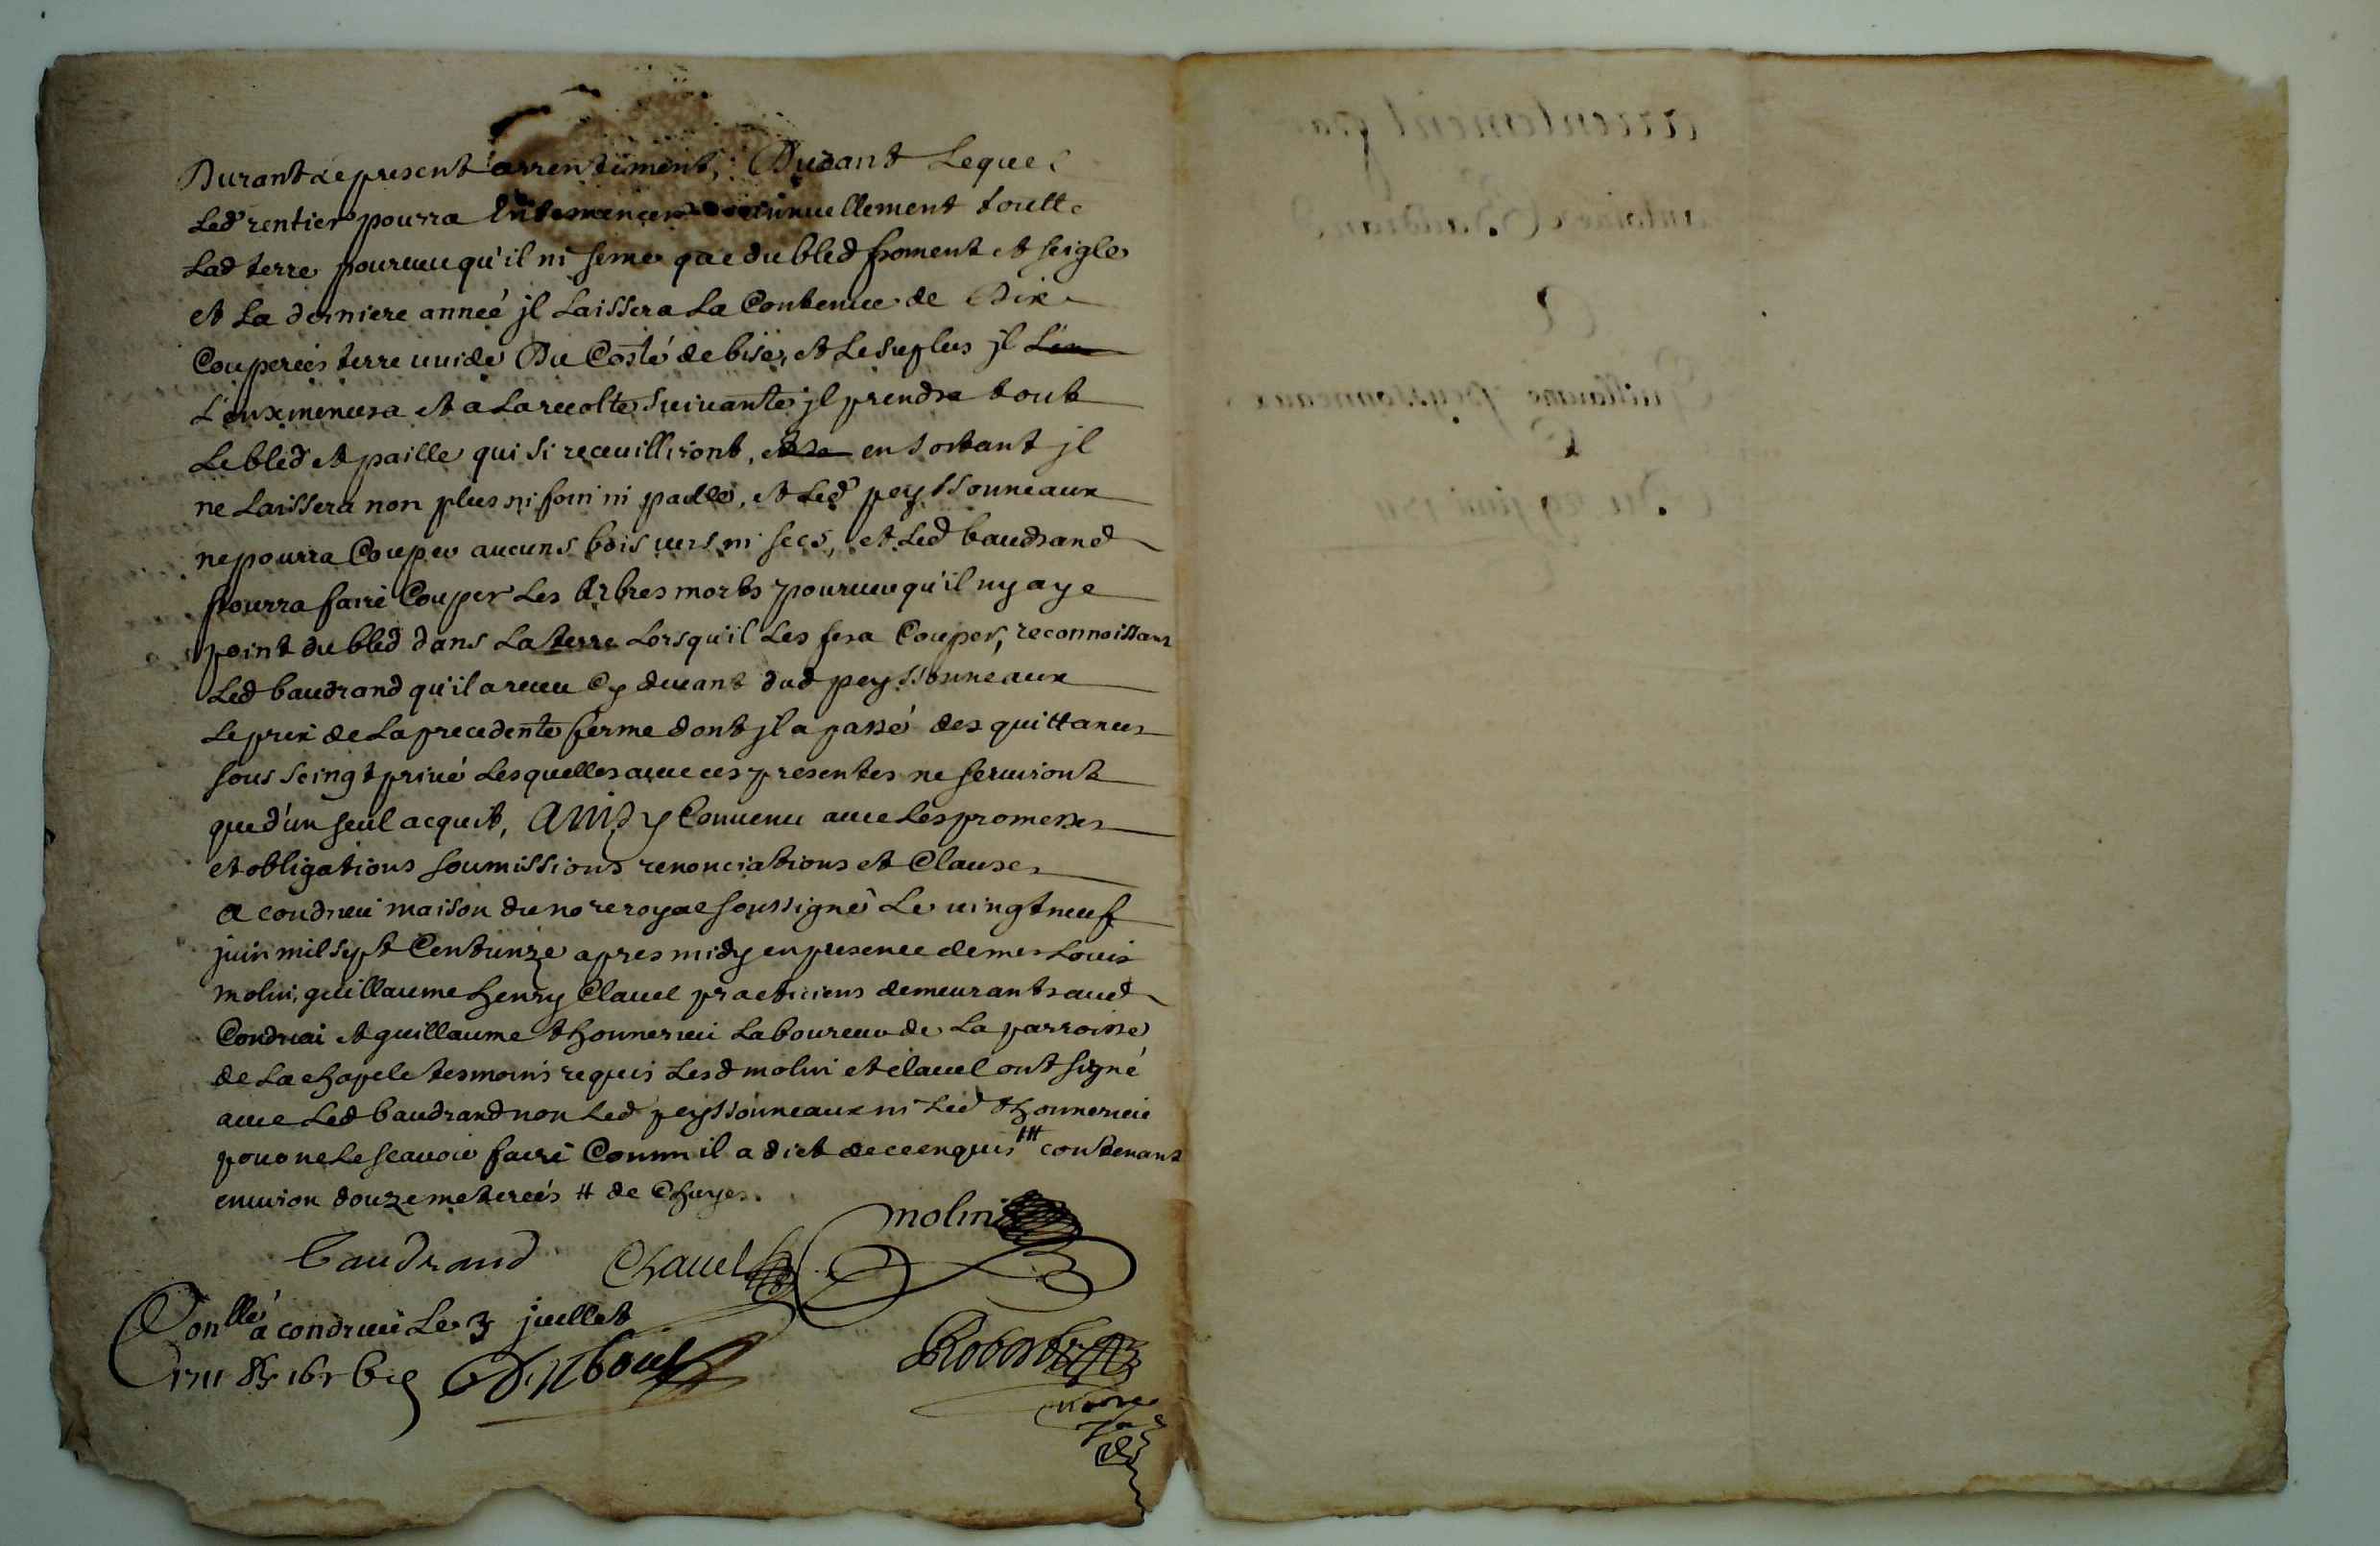 Durant le present arrentement, Durant Lequel
Led rentier pourra annuellement toutte
Lad terre pourueu qu'il ni seme que du bled froment et seigle
et La derniere anneé jl Laissera La Contenue de Dix
Couperées terre uuide Du Costé de bise, et Le suplus jl L'en
L'enxemencera et a La recolte suiuante jl prendra tout
Le bled et paille qui si receuilliront, et en sortant jl
ne Laissera non plus ni foin ni paille, et Led peyssonneaux
ne pourra Couper aucuns bois uers ni secs, et Led baudrand
pourra faire Couper Les Arbres morts pourueu qu'il ny aye
point du bled dans La terre Lorsqu'il Les fera Couper, reconnoissant
Led baudrand qu'il a receu Cy deuant dud peyssonneaux
Le prix de La precedente ferme dont jl a passé des quittances
sous seingt priué Lesquelles auec ces presentes ne seruiront
que d'un seul acquit, Ainsy Conuenu auec Les promesses
et obligations soumissions renonciations et Clauses
A condrieu maison du nore royal soussigné Le uingt neuf
juin mil sept Cent unze apres midy en presence de mes Louis
molin, guillaume henry Clauel practiciens demeurants aud
Condrieu et guillaume thonnerieu Laboureur de La parroisse
de La chapele tesmoins requis Lesd molin et clauel ont signé
auec Led baudrand non Led peyssonneaux ni Led thonnerieu
pour ne Le scauoir faire Comm il a dict de ce enquis ╫ contenant
enuiron douze meterées # de Chuyes.
molin
Baudrand Clauel
Conllé a condrieu Le 3 juillet
1711
Robert
nore
arrentement
antoine Baudrand
A
Guillaume peyssonneaux
Du 29 juin 1711